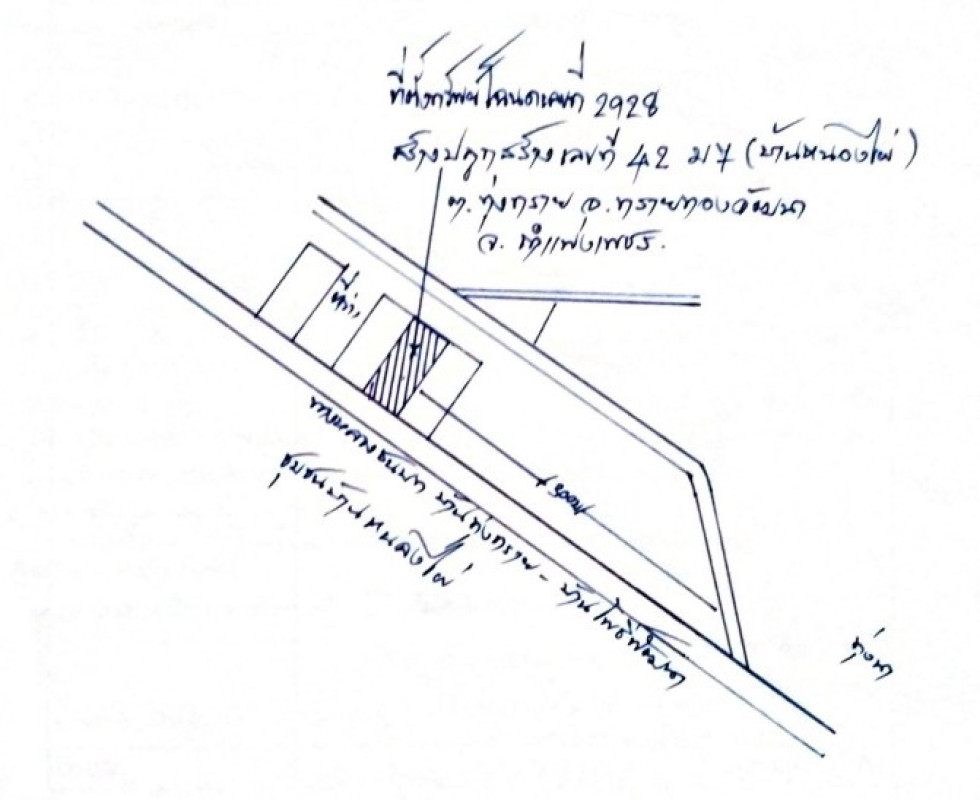 ที่ตั้งทรัพย์ โฉนดเลขที่ 2928
สร้างปลูกสร้างเลขที่ 42 ม 7 (บ้านหนองไผ่)
ต. ทุ่งทราย อ. ทรายทองวัฒนา
จ. กำแพงเพชร.
ที่ว่าง
300 ม
ทางหลวงชนบท บ้านทุ่งทราย - บ้านโพธิ์พัฒนา
ชุมชนบ้านหนองไผ่
ทุ่งนา